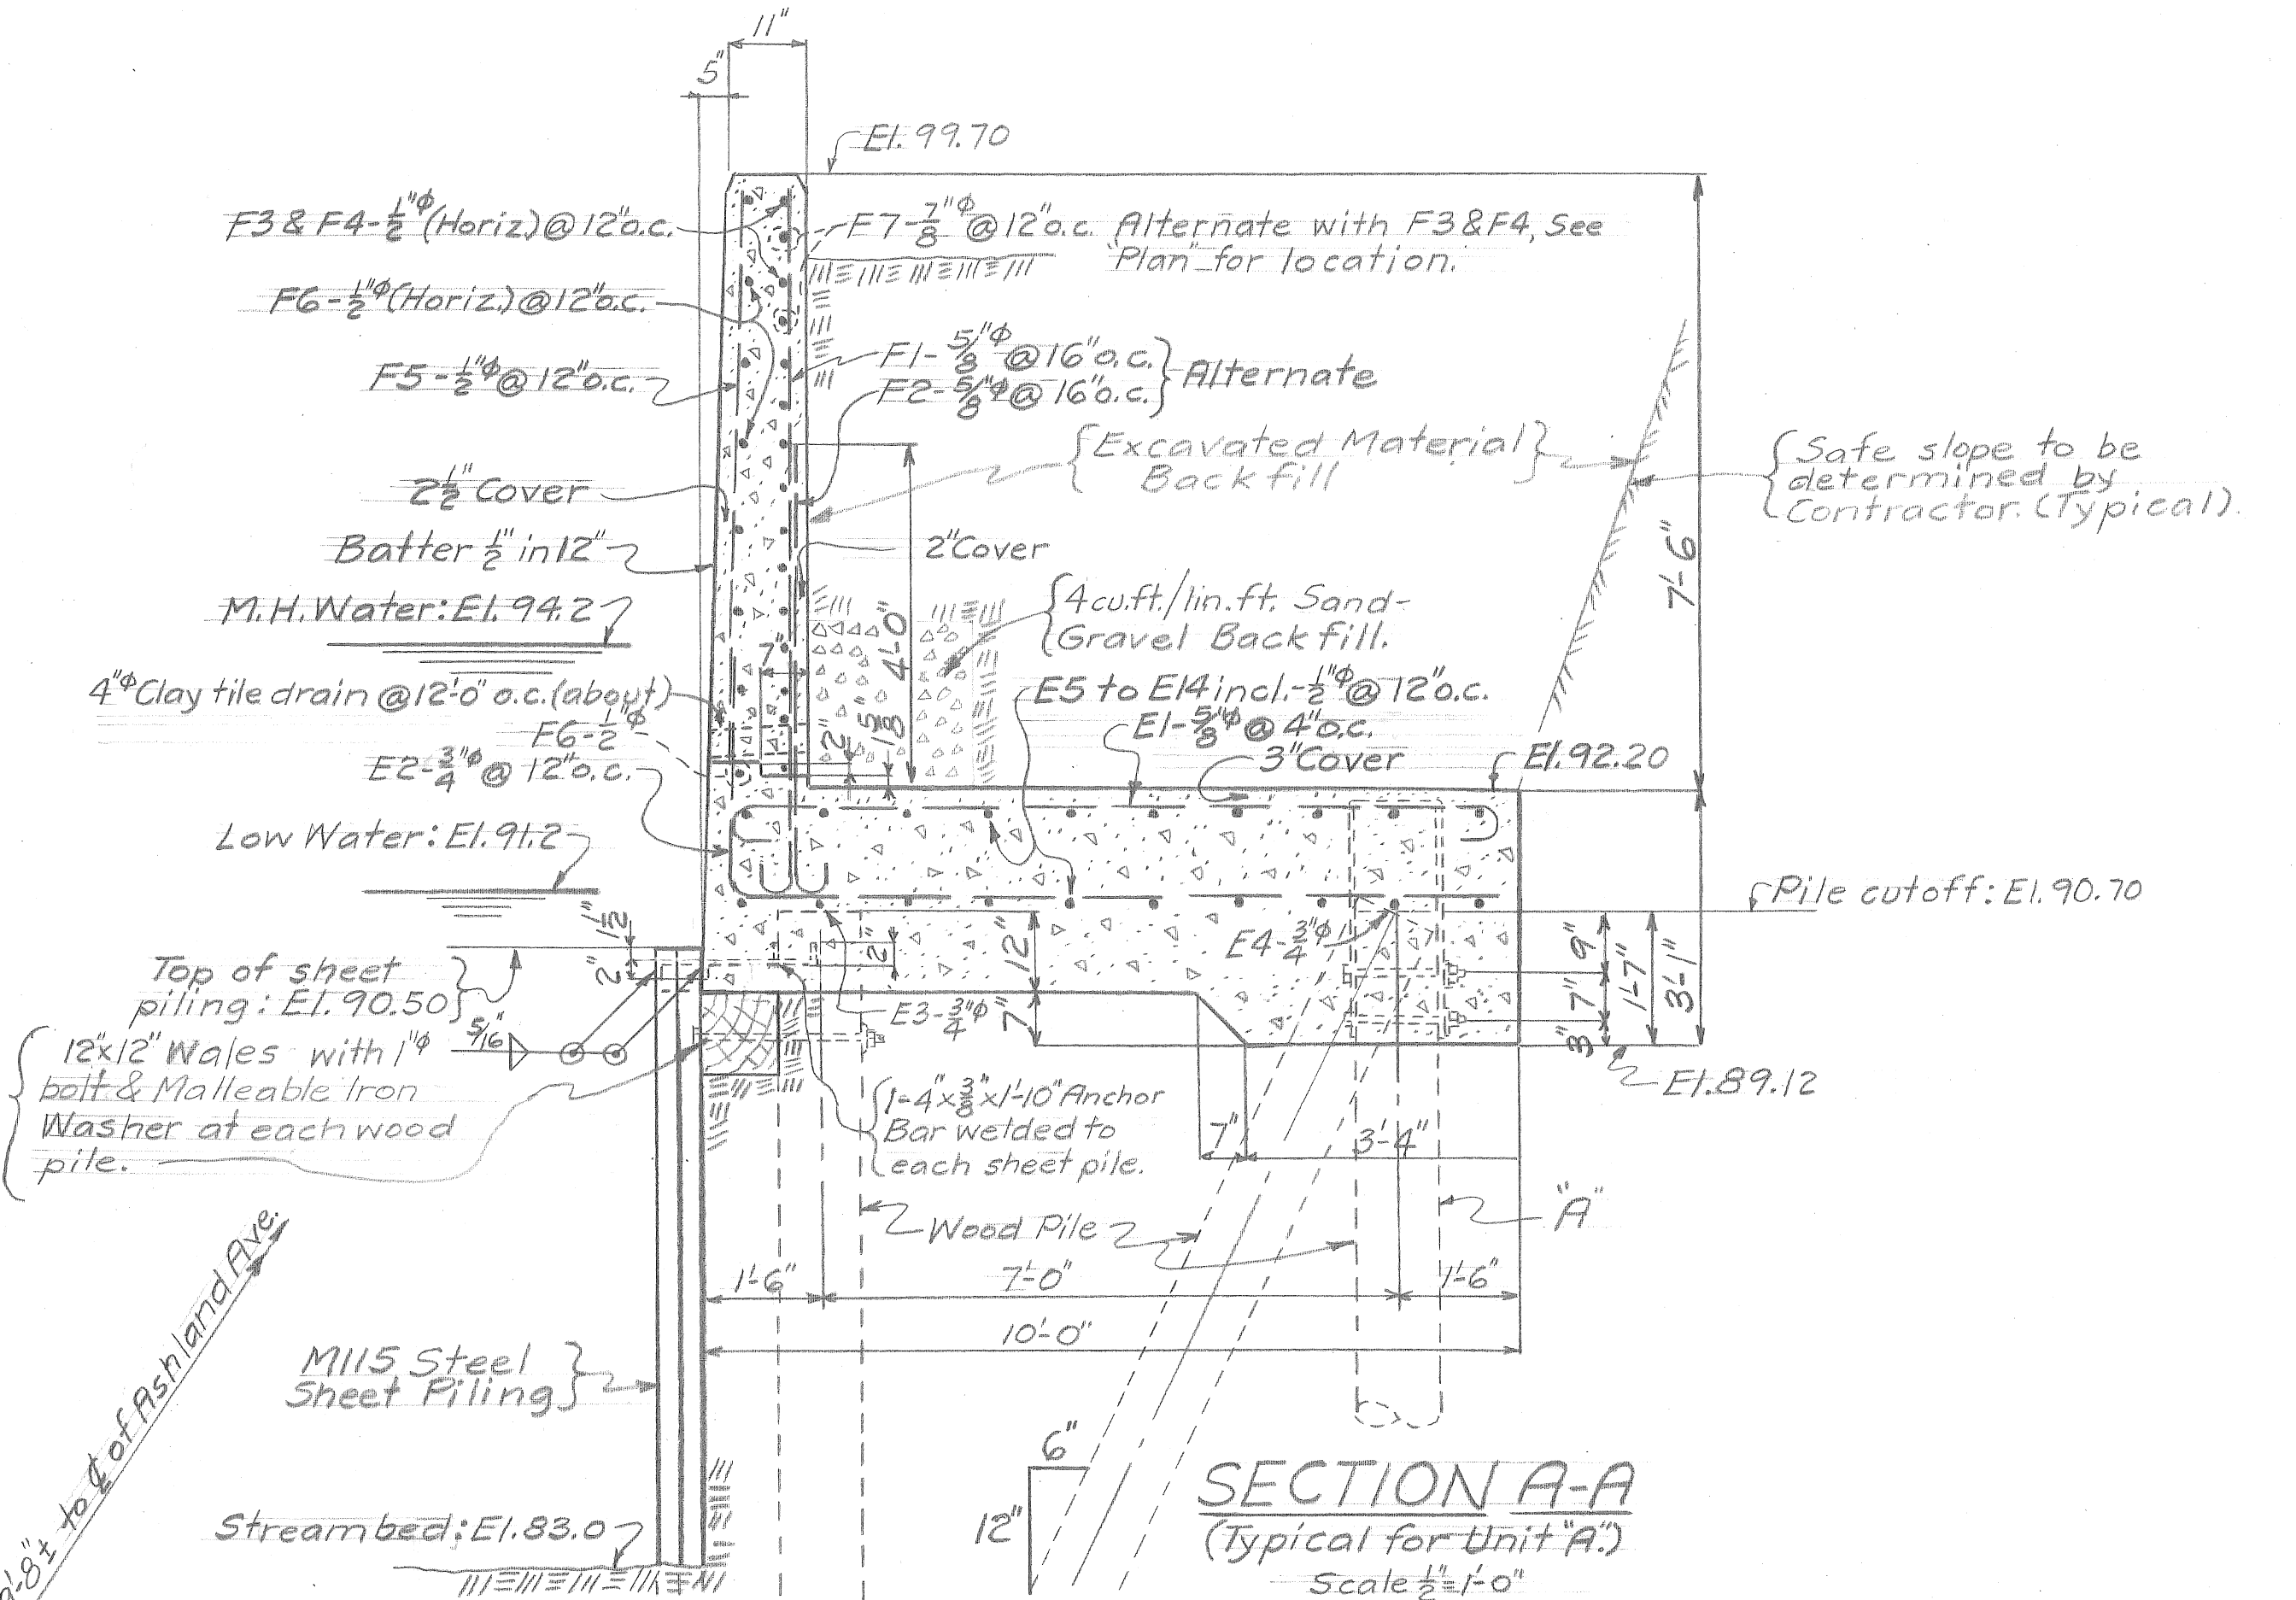 11"
5"
El. 99.70
F3 & F4-1/2"ϕ (Horiz) @ 12"o.c.
F7-7/8"ϕ @ 12"o.c. Alternate with F3 & F4, See
"Plan" for location.
F6-1/2"ϕ (Horiz.) @ 12"o.c.
F1-5/8"ϕ @ 16"o.c.
F2-5/8"ϕ @ 16"o.c.
Alternate
F5-1/2"ϕ @ 12"o.c.
Excavated Material
Backfill
Safe slope to be
determined by
Contractor. (Typical).
2 1/2" Cover
Batter 1/2" in 12"
2" Cover
7'-6"
M.H. Water: El. 94.2
4 cu.ft./lin.ft. Sand-
Gravel Backfill.
7"
4'-0"
4"ϕ Clay tile drain @ 12'-0" o.c. (about)
E5 to E14 incl.-1/2"ϕ @ 12"o.c.
F6-1/2"ϕ
E1-5/8"ϕ @ 4"o.c.
2"
1 5/8"
E2-3/4"ϕ @ 12"o.c.
3" Cover
El. 92.20
Low Water: El. 91.2
Pile cutoff: El. 90.70
1 1/2"
2"
2"
12"
E4-3/4"ϕ
9"
1'-7"
3'-1"
Top of sheet
piling: El. 90.50
7"
7"
3"
E3-3/4"ϕ
5/16"
12"x12" Wales with 1"ϕ
bolt & Malleable Iron
Washer at each wood
pile.
El. 89.12
1-4"x3/8"x1'-10" Anchor
Bar welded to
each sheet pile.
7"
3'-4"
Wood Pile
"A"
1'-6"
7'-0"
1'-6"
10'-0"
M115 Steel
Sheet Piling
'-8"± to ℄ of Ashland Ave.
6"
12"
Streambed: El. 83.0
SECTION A-A
(Typical for Unit "A".)
Scale 1/2"=1'-0"